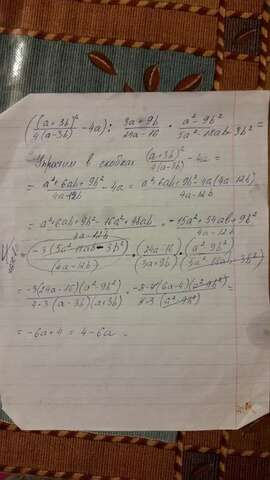 ((a+3b)²/4(a-3b) - 4a) : 3a+9b/24a-16 · a²-9b²/5a²-18ab-3b² =
Упростим в скобках (a+3b)²/4(a-3b) - 4a =
= a²+6ab+9b²/4a-12b - 4a = a²+6ab+9b²-4a(4a-12b)/4a-12b
= a²+6ab+9b²-16a²+48ab/4a-12b = -15a²+54ab+9b²/4a-12b
= -3(5a²-18ab-3b²)/(4a-12b) · (24a-16)/(3a+9b) · (a²-9b²)/(5a²-18ab-3b²)
= -3(24a-16)(a²-9b²)/4·3(a-3b)(a+3b) = -3·4(6a-4)(a²-9b²)/4·3(a²-9b²) =
= -6a+4 = 4-6a.